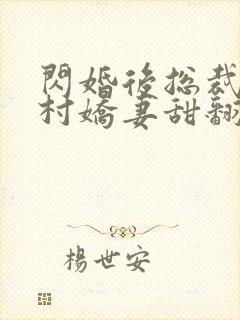 閃婚後總裁
村嬌妻甜翻
楊世安